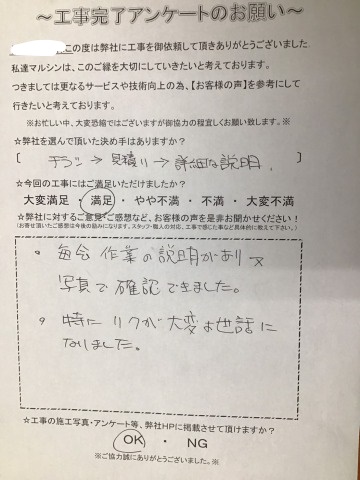 ～工事完了アンケートのお願い～
この度は弊社に工事を御依頼して頂きありがとうございました
私達マルシンは、このご縁を大切にしていきたいと考えております。
つきましては更なるサービスや技術向上の為、【お客様の声】を参考にして
行きたいと考えております。
※お忙しい中、大変恐縮ではございますが御協力の程宜しくお願い致します。※
☆弊社を選んで頂いた決め手はありますか?
[ チラシ→見積り→詳細な説明. ]
☆今回の工事にはご満足いただけましたか?
大変満足・満足・やや不満・不満・大変不満
☆弊社に対するご意見・ご感想など、お客様の声を是非お聞かせください!
(お寄せ頂いたご感想は今後の励みになります。スタッフ・職人の対応、工事で感じた事など具体的に教えて下さい。)
。毎会 作業の説明があり又
写真で確認できました。
。特に が大変お世話に
なりました。
☆工事の施工写真・アンケート等、弊社HPに掲載させて頂けますか?
OK ・ NG
※ご協力誠にありがとうございました。※